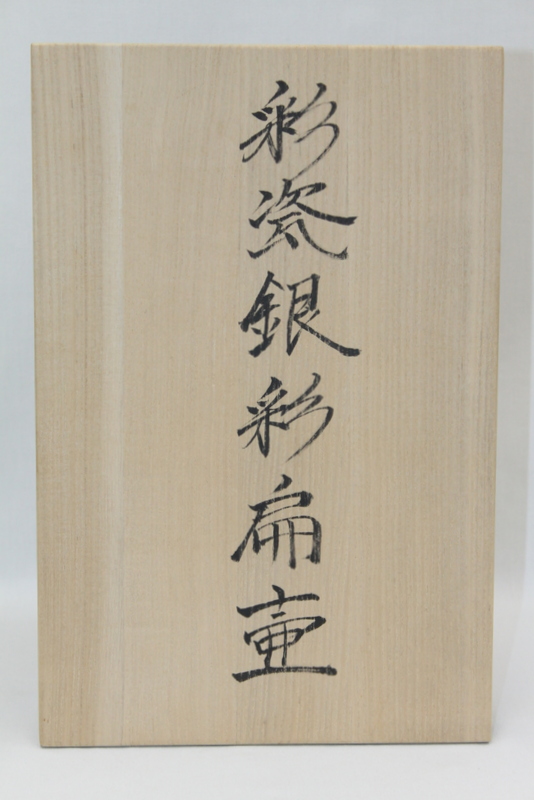 彩瓷銀彩扁壷